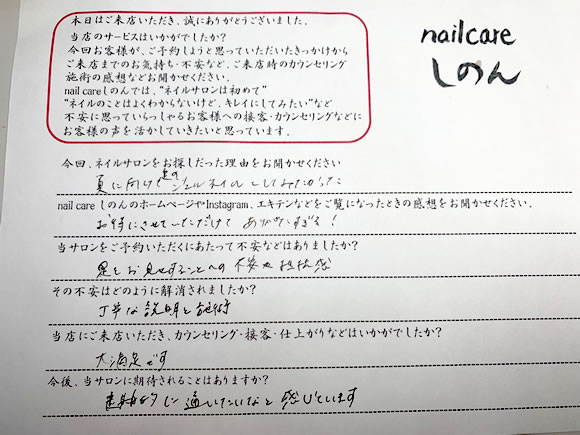 本日はご来店いただき、誠にありがとうございました。
当店のサービスはいかがでしたか?
今回お客様が、ご予約しようと思っていただいたきっかけから
ご来店までのお気持ち・不安など、ご来店時のカウンセリング
施術の感想などお聞かせください。
nail careしのんでは、"ネイルサロンは初めて"
"ネイルのことはよくわからないけど、キレイにしてみたい"など
不安に思っていらっしゃるお客様への接客・カウンセリングなどに
お客様の声を活かしていきたいと思っています。
nailcare
しのん
今回、ネイルサロンをお探しだった理由をお聞かせください
夏に向けて足のジェルネイルをしてみたかった
nail care しのんのホームページやInstagram、エキテンなどをご覧になったときの感想をお聞かせください。
お得にさせていただけて ありがたすぎる!
当サロンをご予約いただくにあたって不安などはありましたか?
足をお見せすることへの不安や抵抗感
その不安はどのように解消されましたか?
丁寧な説明と施術
当店にご来店いただき、カウンセリング・接客・仕上がりなどはいかがでしたか?
大満足です
今後、当サロンに期待されることはありますか?
定期的に通いたいなと感じています